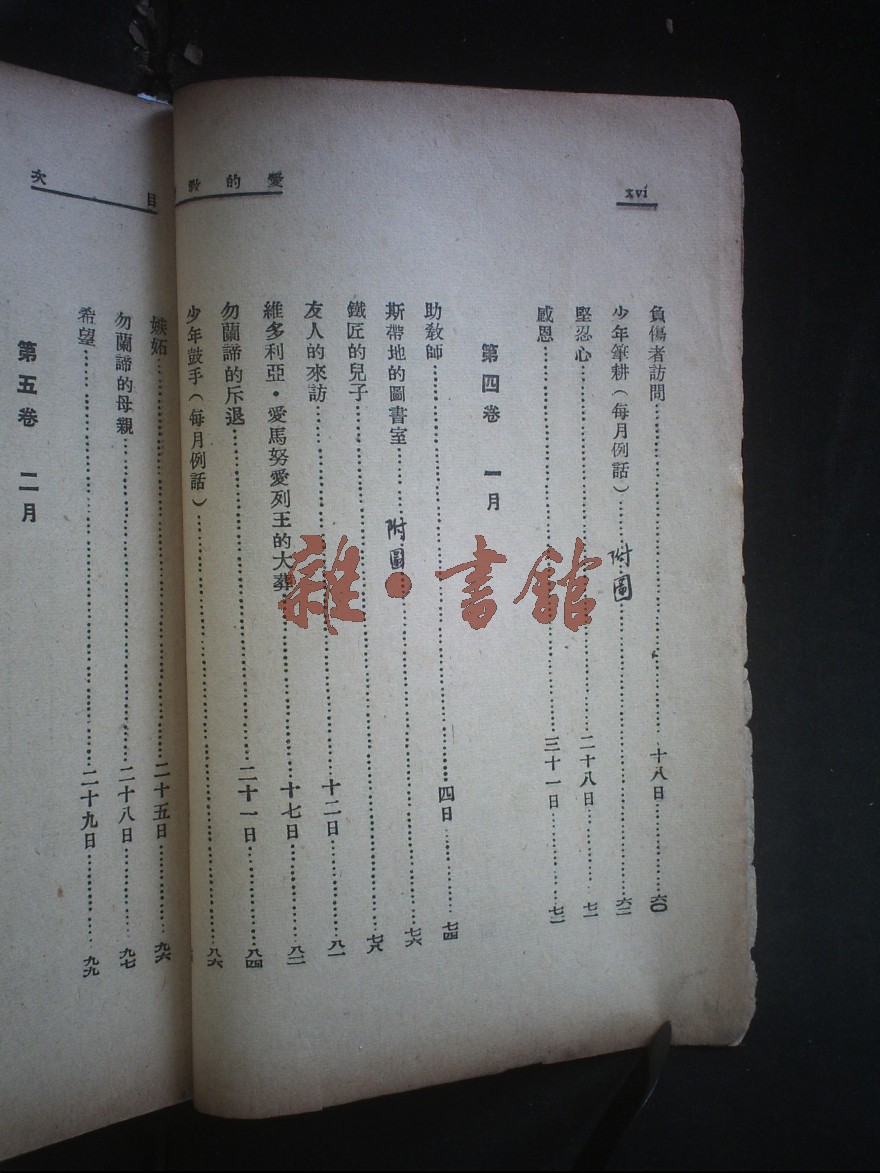 xvi
愛的教
負傷者訪問……十八日……六〇
少年筆耕（每月例話）……附圖……六二
堅忍心……二十八日……七一
感恩……三十一日……七二
第四卷　一月
助敎師……四日……七四
斯帶地的圖書室……附圖……七六
鐵匠的兒子……七八
友人的來訪……十二日……八一
維多利亞·愛馬努愛列王的大葬……十七日……八二
勿蘭諦的斥退……二十一日……八四
少年鼓手（每月例話）……八六
目次
嫉妬……二十五日……九六
勿蘭諦的母親……二十八日……九七
希望……二十九日……九九
第五卷　二月
雜·書館